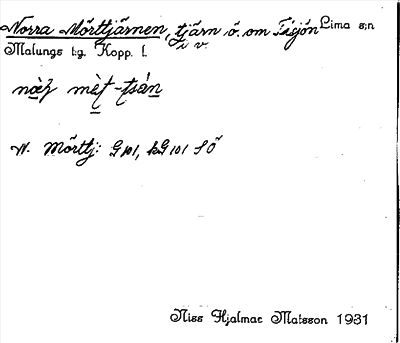 Norra Mörttjärnen, tjärn ö. om Tisjön Lima s:n
i v.
Malungs t:g. Kopp. l.
N. Mörttj: G 101, kG 101 SÖ
Niss Hjalmar Matsson 1931